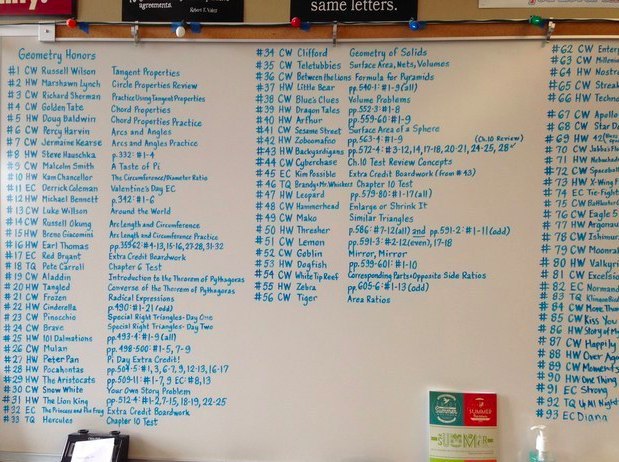 agreements.
Robert E. Valett
same letters.
Geometry Honors
#1 CW Russell Wilson Tangent Properties
#2 HW Marshawn Lynch Circle Properties Review
#3 CW Richard Sherman Practice Using Tangent Properties
#4 CW Golden Tate Chord Properties
#5 HW Doug Baldwin Chord Properties Practice
#6 CW Percy Harvin Arcs and Angles
#7 CW Jermaine Kearse Arcs and Angles Practice
#8 HW Steve Hauschka p.332: #1-4
#9 CW Malcolm Smith A Taste of Pi
#10 HW Kam Chancellor The Circumference/Diameter Ratio
#11 EC Derrick Coleman Valentine's Day EC
#12 HW Michael Bennett p.342: #1-6
#13 CW Luke Willson Around the World
#14 CW Russell Okung Arc Length and Circumference
#15 HW Breno Giacomini Arc Length and Circumference Practice
#16 HW Earl Thomas pp.355-62: #1-13, 15-16, 27-28, 31-32
#17 EC Red Bryant Extra Credit Boardwork
#18 TQ Pete Carroll Chapter 6 Test
#19 CW Aladdin Introduction to the Theorem of Pythagoras
#20 HW Tangled Converse of the Theorem of Pythagoras
#21 CW Frozen Radical Expressions
#22 HW Cinderella p.490: #1-21 (odd)
#23 CW Pinocchio Special Right Triangles-Day One
#24 CW Brave Special Right Triangles-Day Two
#25 HW 101 Dalmations pp.493-4: #1-9 (all)
#26 CW Mulan pp.498-500: #1-5, 7-9
#27 HW Peter Pan Pi Day Extra Credit!
#28 HW Pocahontas pp.504-5: #1, 3, 6-7, 9, 12-13, 16-17
#29 HW The Aristocats pp.509-11: #1-7, 9 EC: #8, 13
#30 CW Snow White Your Own Story Problem
#31 HW The Lion King pp.512-4: #1-2, 7-15, 18-19, 22-25
#32 EC The Princess and the Frog Extra Credit Boardwork
#33 TQ Hercules Chapter 10 Test
#34 CW Clifford Geometry of Solids
#35 CW Teletubbies Surface Area, Nets, Volumes
#36 CW Between the Lions Formula for Pyramids
#37 HW Little Bear pp.540-1: #1-9 (all)
#38 CW Blue's Clues Volume Problems
#39 HW Dragon Tales pp.552-3: #1-8
#40 HW Arthur pp.559-60: #1-9
#41 CW Sesame Street Surface Area of a Sphere
#42 HW Zoboomafoo pp.563-4: #1-9
#43 HW Backyardigans pp.572-4: #3-12, 14, 17-18, 20-21, 24-25, 28✓ (Ch.10 Review)
#44 CW Cyberchase Ch.10 Test Review Concepts
#45 EC Kim Possible Extra Credit Boardwork (from #43)
#46 TQ Brandy + Mr. Whiskers Chapter 10 Test
#47 HW Leopard pp.579-80: #1-17 (all)
#48 CW Hammerhead Enlarge or Shrink It
#49 CW Mako Similar Triangles
#50 HW Thresher p.586: #7-12 (all) and pp.591-2: #1-11 (odd)
#51 CW Lemon pp.591-3: #2-12 (even), 17-18
#52 CW Goblin Mirror, Mirror
#53 HW Dogfish pp.599-601: #1-10
#54 CW White Tip Reef Corresponding Parts + Opposite Side Ratios
#55 HW Zebra pp.605-6: #1-13 (odd)
#56 CW Tiger Area Ratios
#62 CW Enter
#63 CW
#64 HW Nostro
#65 CW Streak
#66 HW Techno
#67 CW Apollo
#68 CW Star D
#69 HW 42
#70 CW Jabba's
#71 HW
#72 CW Spaceball
#73 HW X-Wing F
#74 EC Tie-Fight
#75 CW
#76 CW Eagle 5
#77 HW Argonau
#78 CW Ishimur
#79 CW Moonra
#80 HW Valkyri
#81 CW Excelsio
#82 EC Normand
#83 TQ
#84 CW Move
#85 CW Kiss You
#86 HW Story of M
#87 CW Happily
#88 HW Over Aga
#89 CW Momen
#90 HW One Thing
#91 EC Strong
#92 TQ Up All Night
#93 EC Diana
SUMMER